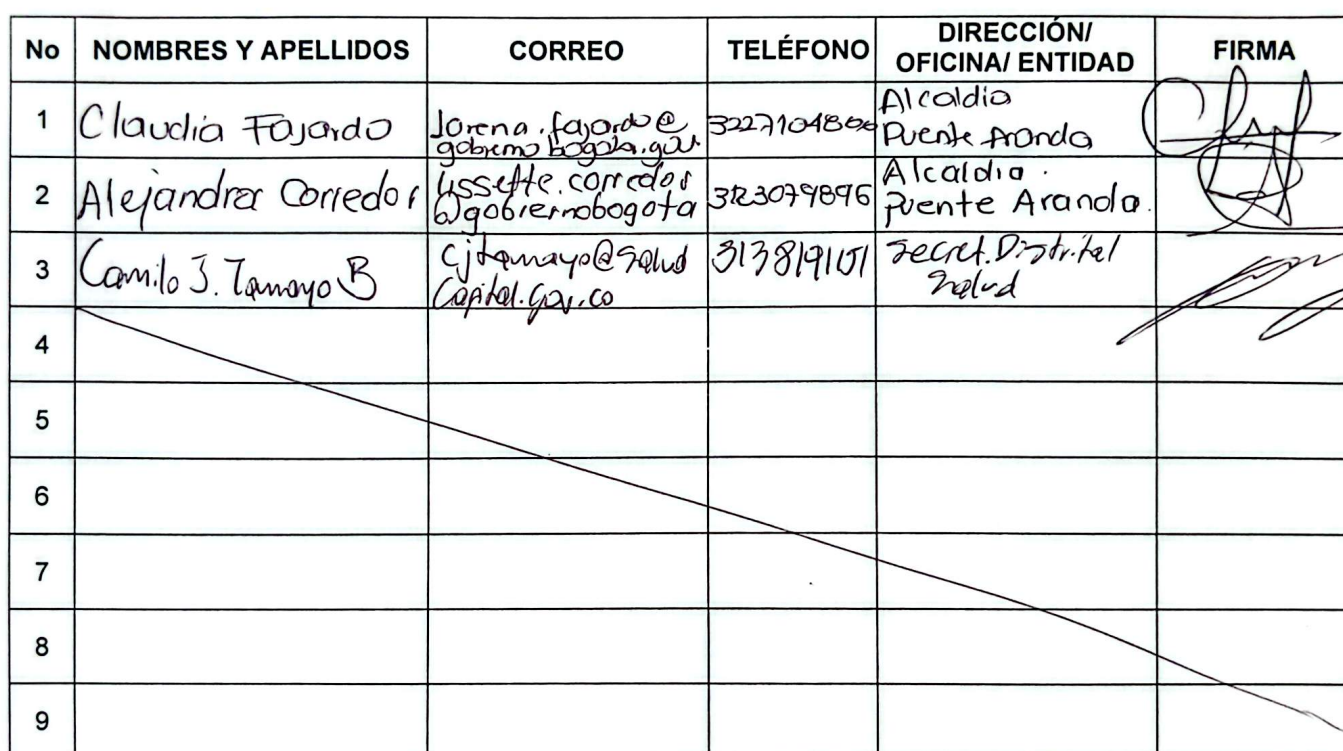 No NOMBRES Y APELLIDOS CORREO TELÉFONO DIRECCIÓN/ OFICINA/ ENTIDAD FIRMA
1 Claudia Fajardo lorena.fajardo@ gobiernobogota.gov Alcaldia Puente Aranda
2 Alejandra Corredor lissette.corredor @gobiernobogota 3123079896 Alcaldia. Puente Aranda.
3 Camilo J. Tamayo B cjtamayo@salud Capital.gov.co 3138191151 Secret. Distrital Salud
4
5
6
7
8
9